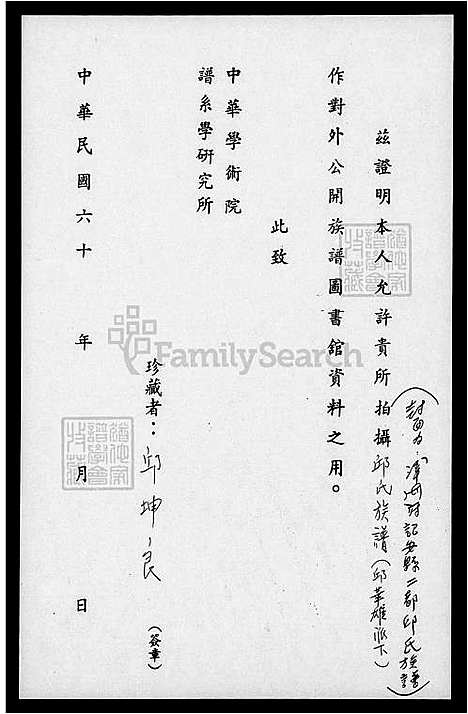 (封面為:漳州府詔安縣二都邱氏族譜)
茲證明本人允許貴所拍攝邱氏族譜(邱華雄派下)
作對外公開族譜圖書館資料之用。
此致
中華學術院
譜系學研究所
珍藏者:邱坤良(簽章)
中華民國六十 年 月 日
FamilySearch